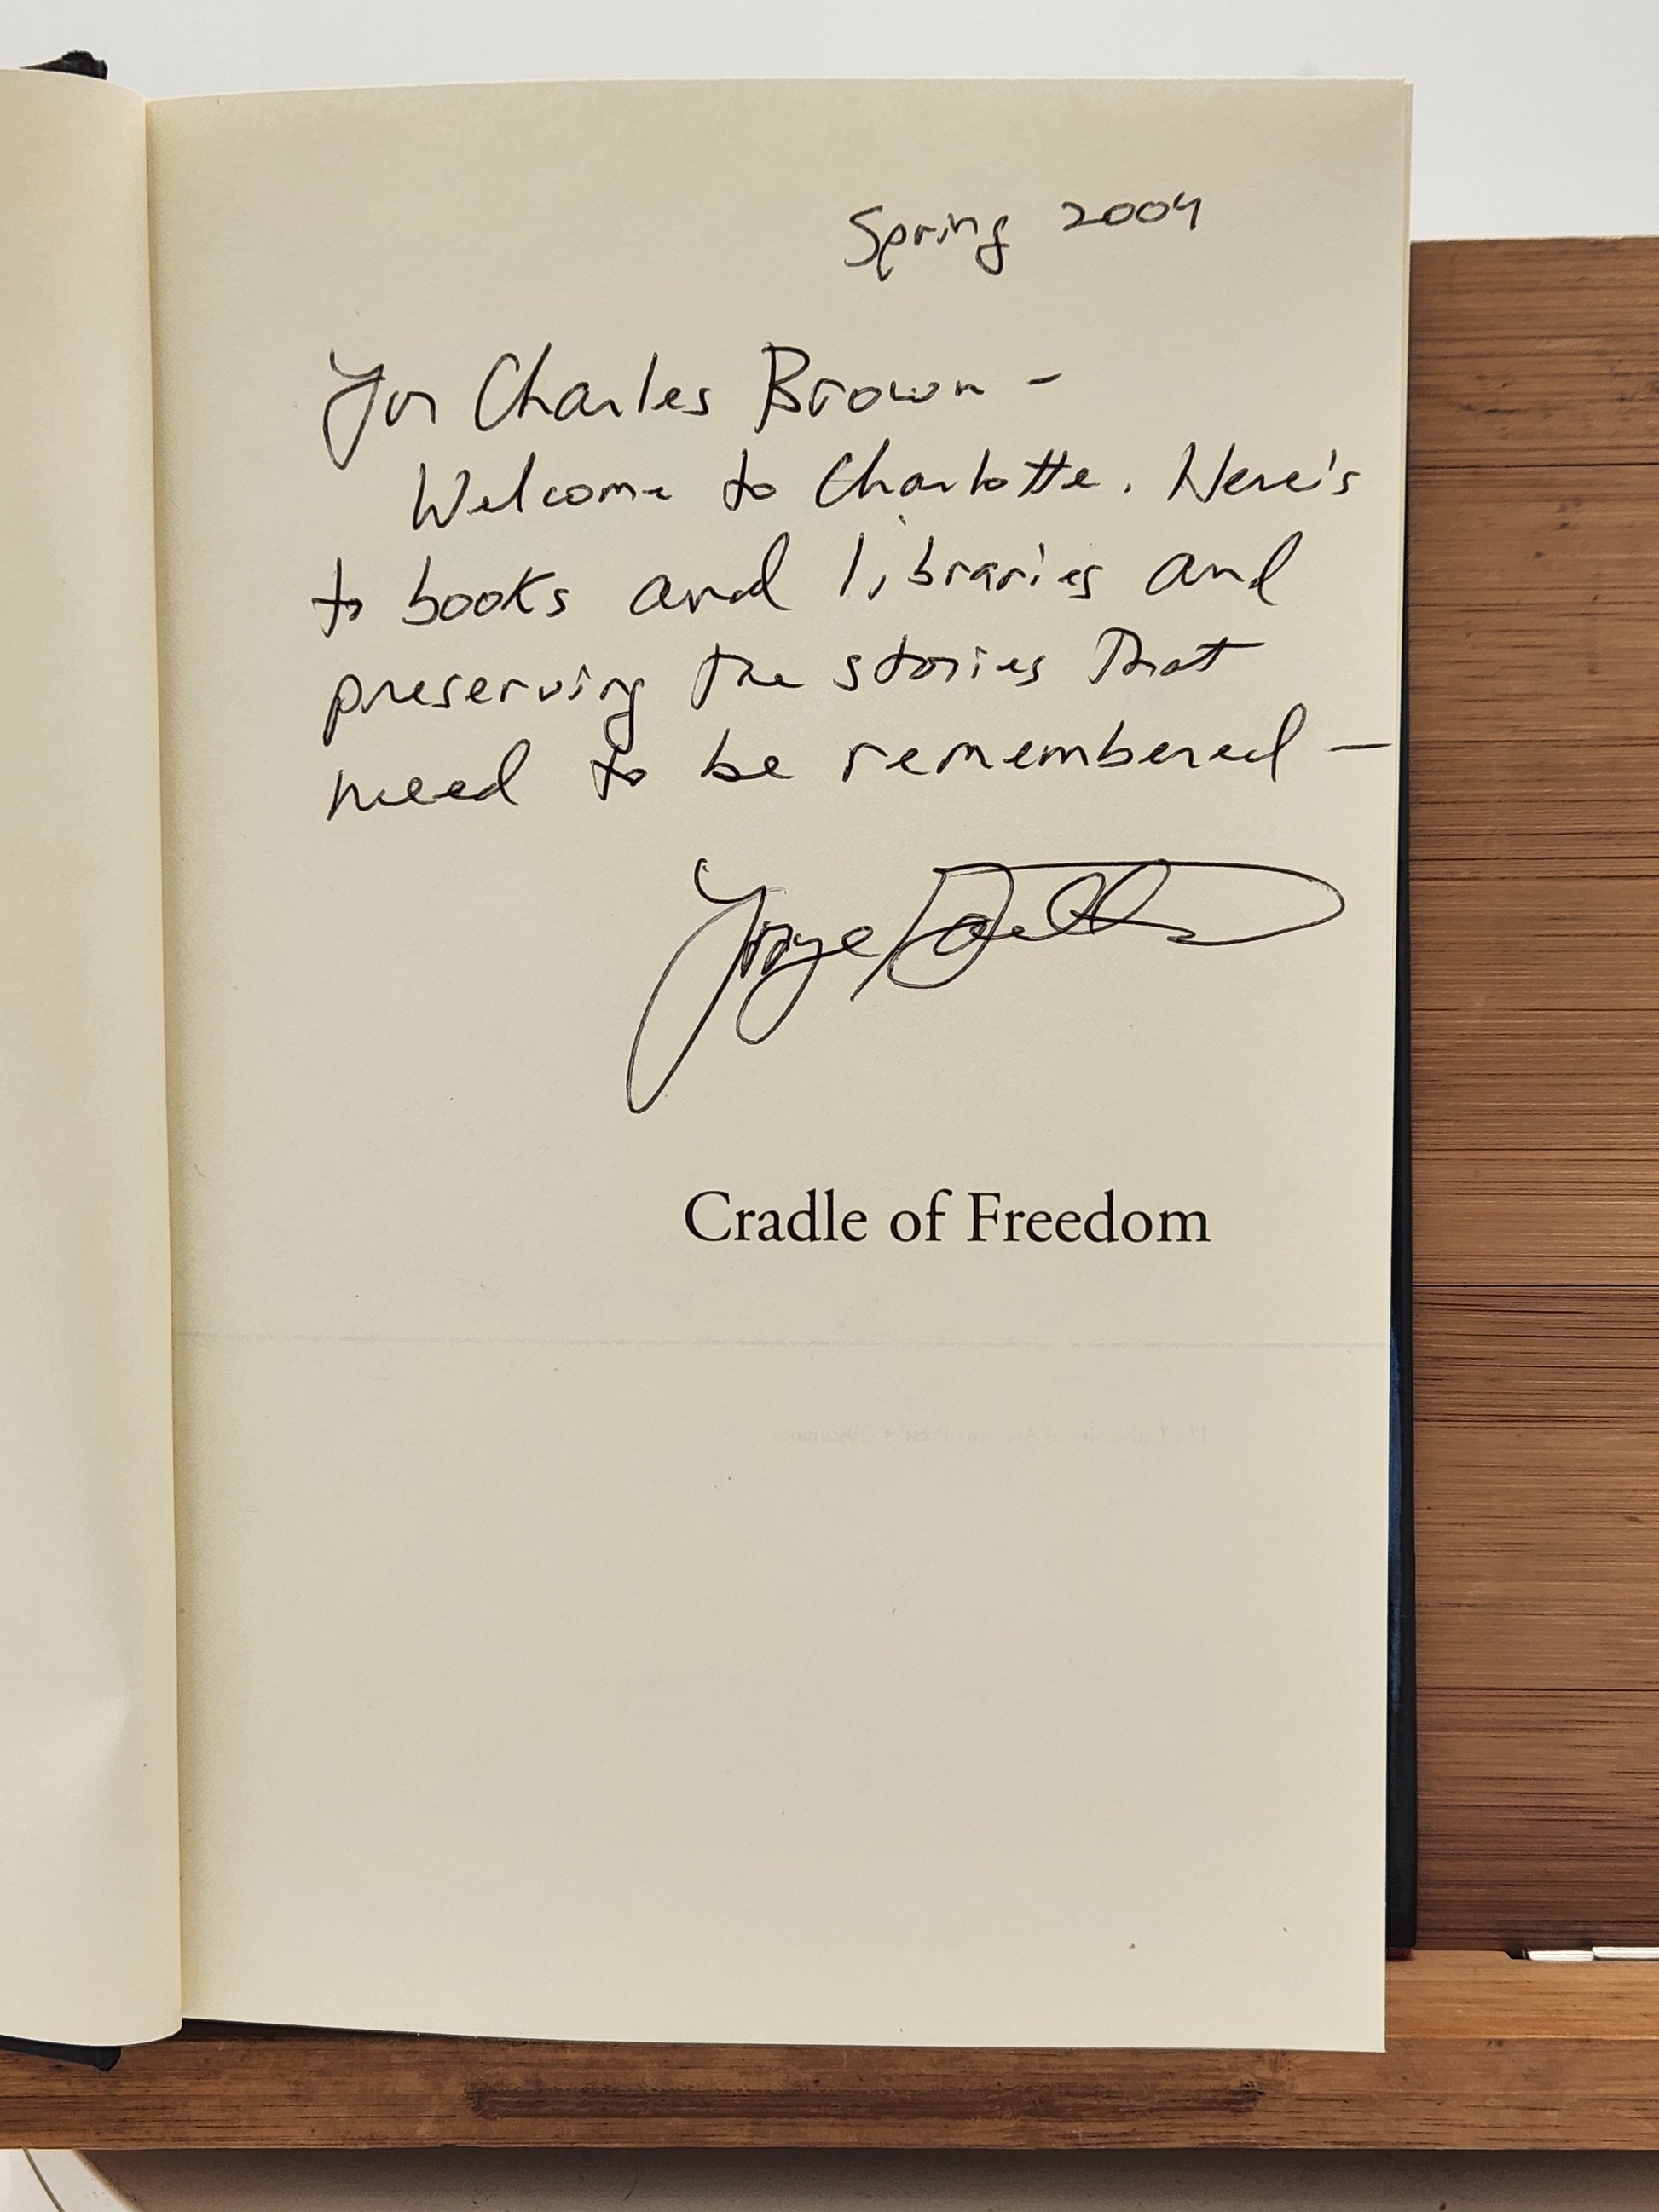 Spring 2004
For Charles Brown –
Welcome to Charlotte. Here's
to books and libraries and
preserving the stories that
need to be remembered —
Cradle of Freedom